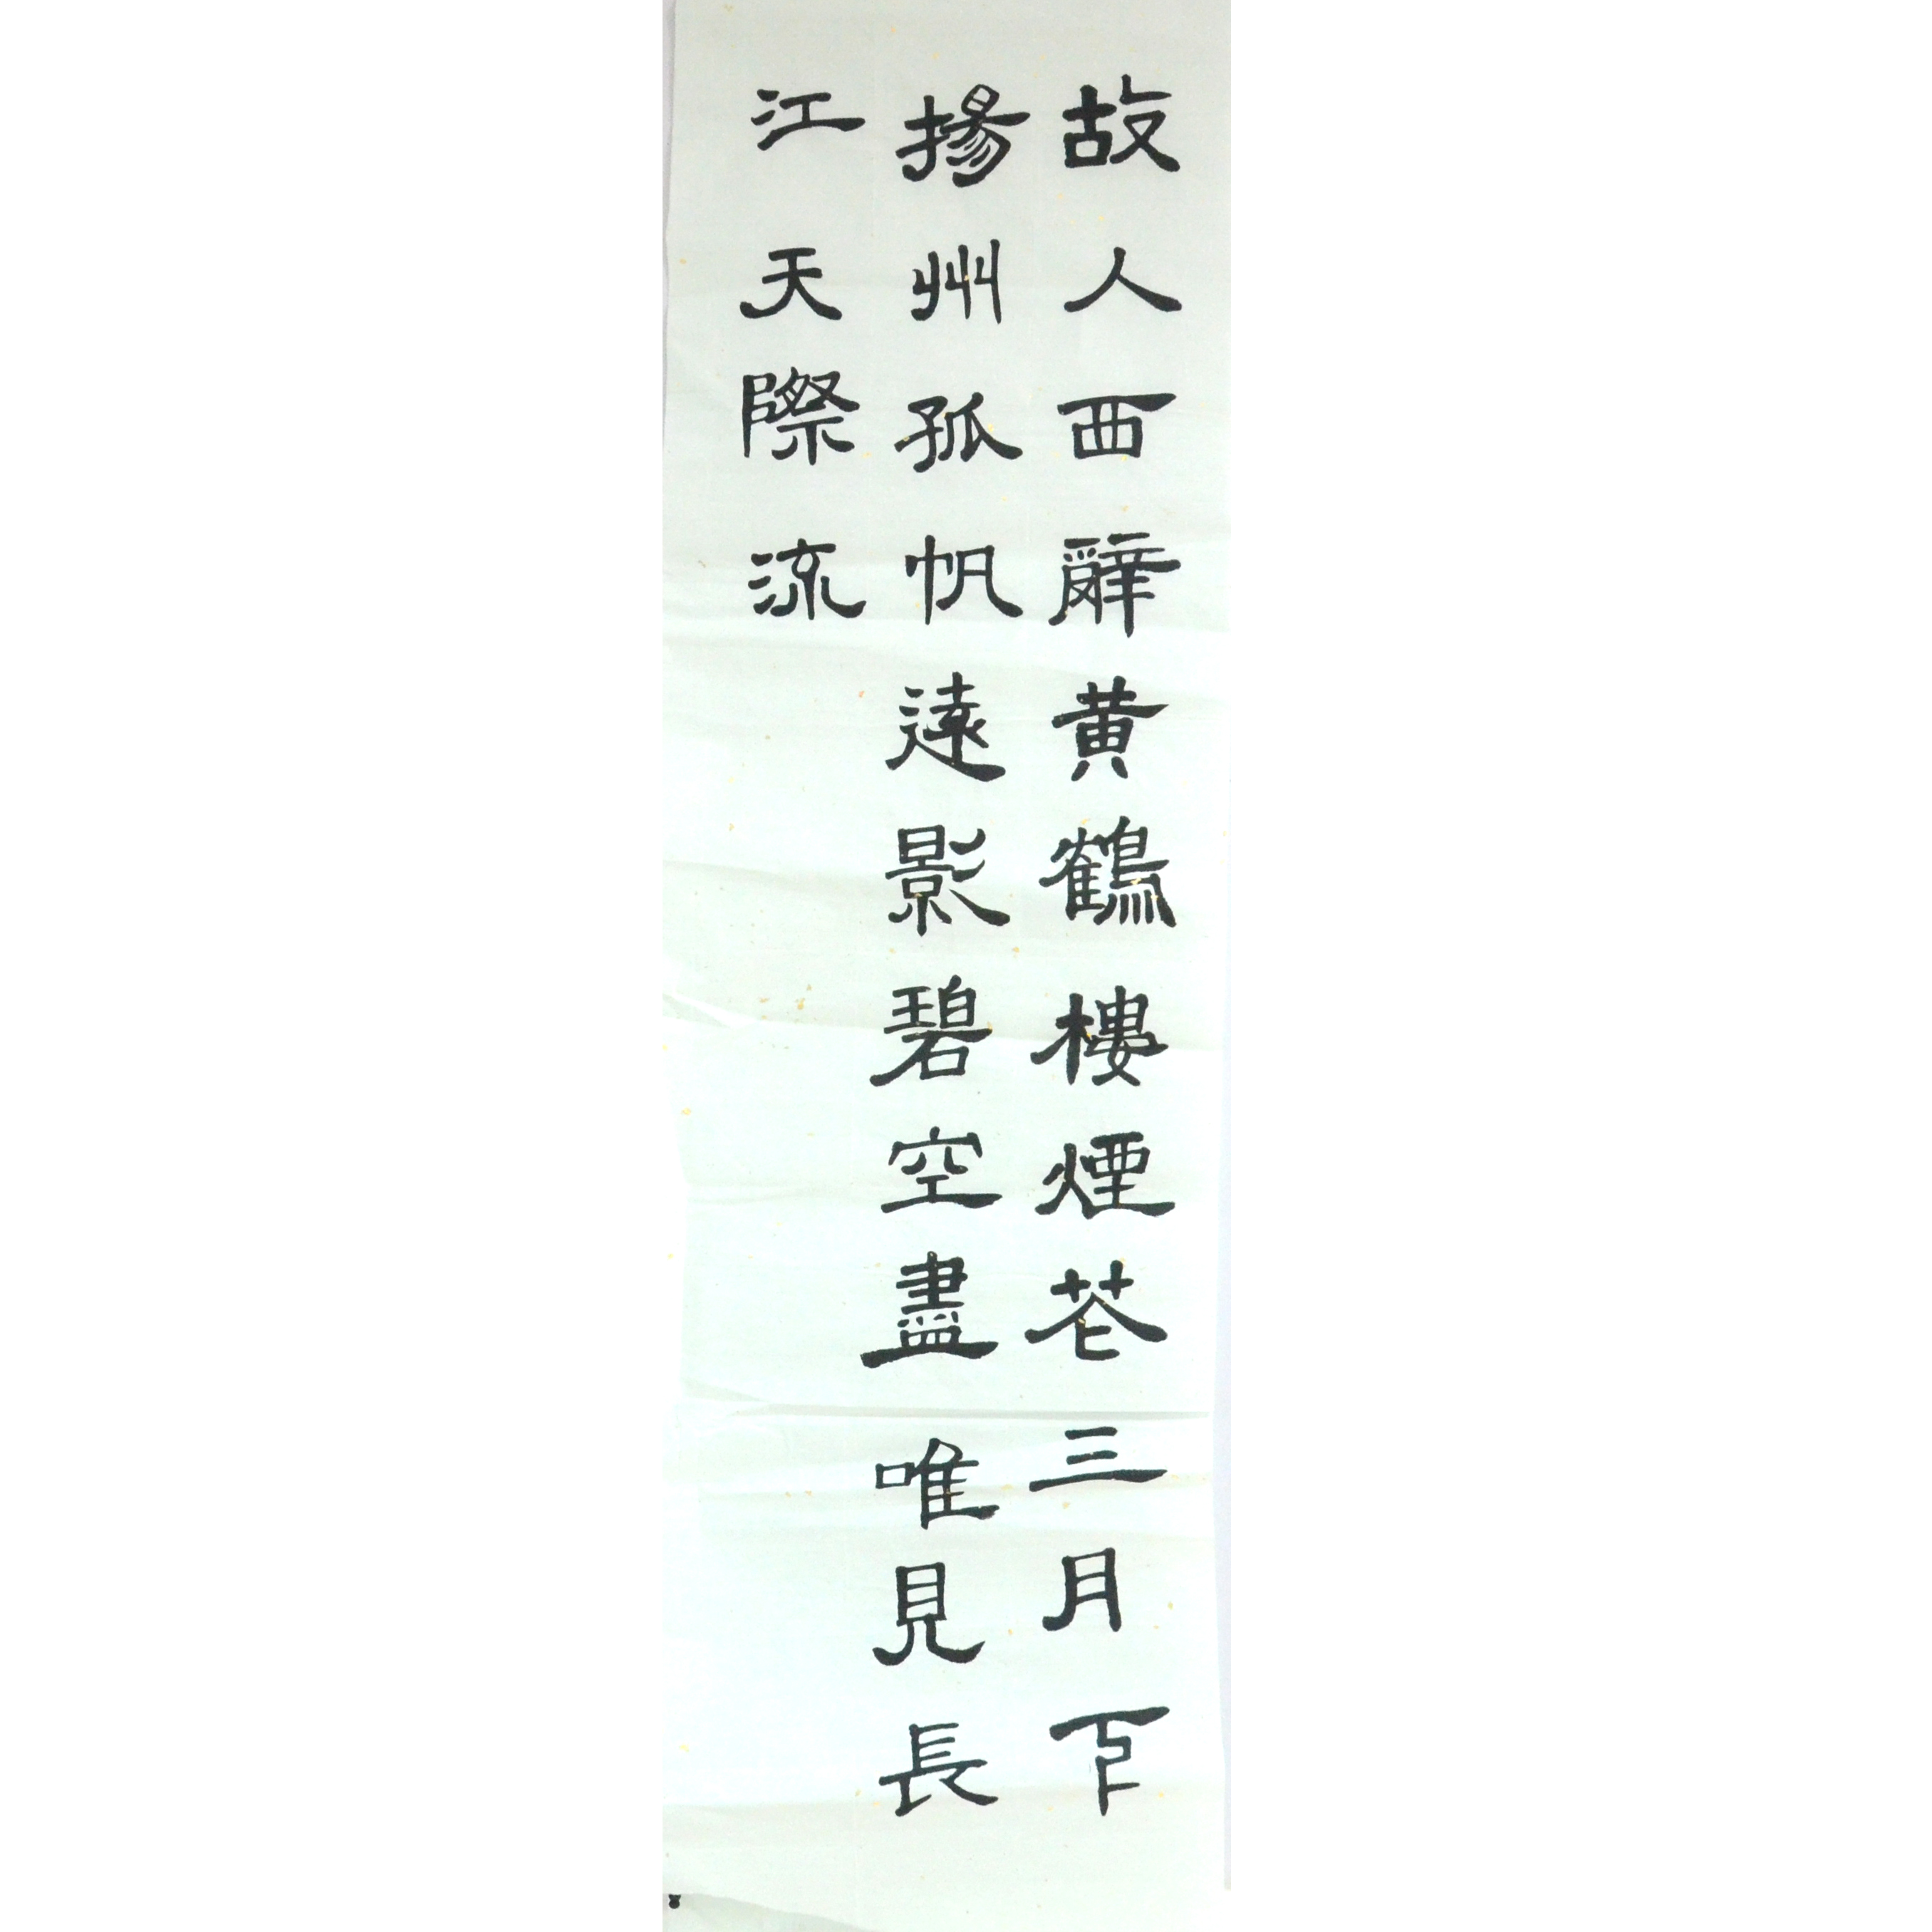 故人西辭黄鶴樓煙花三月下
揚州孤帆遠影碧空盡唯見長
江天際流